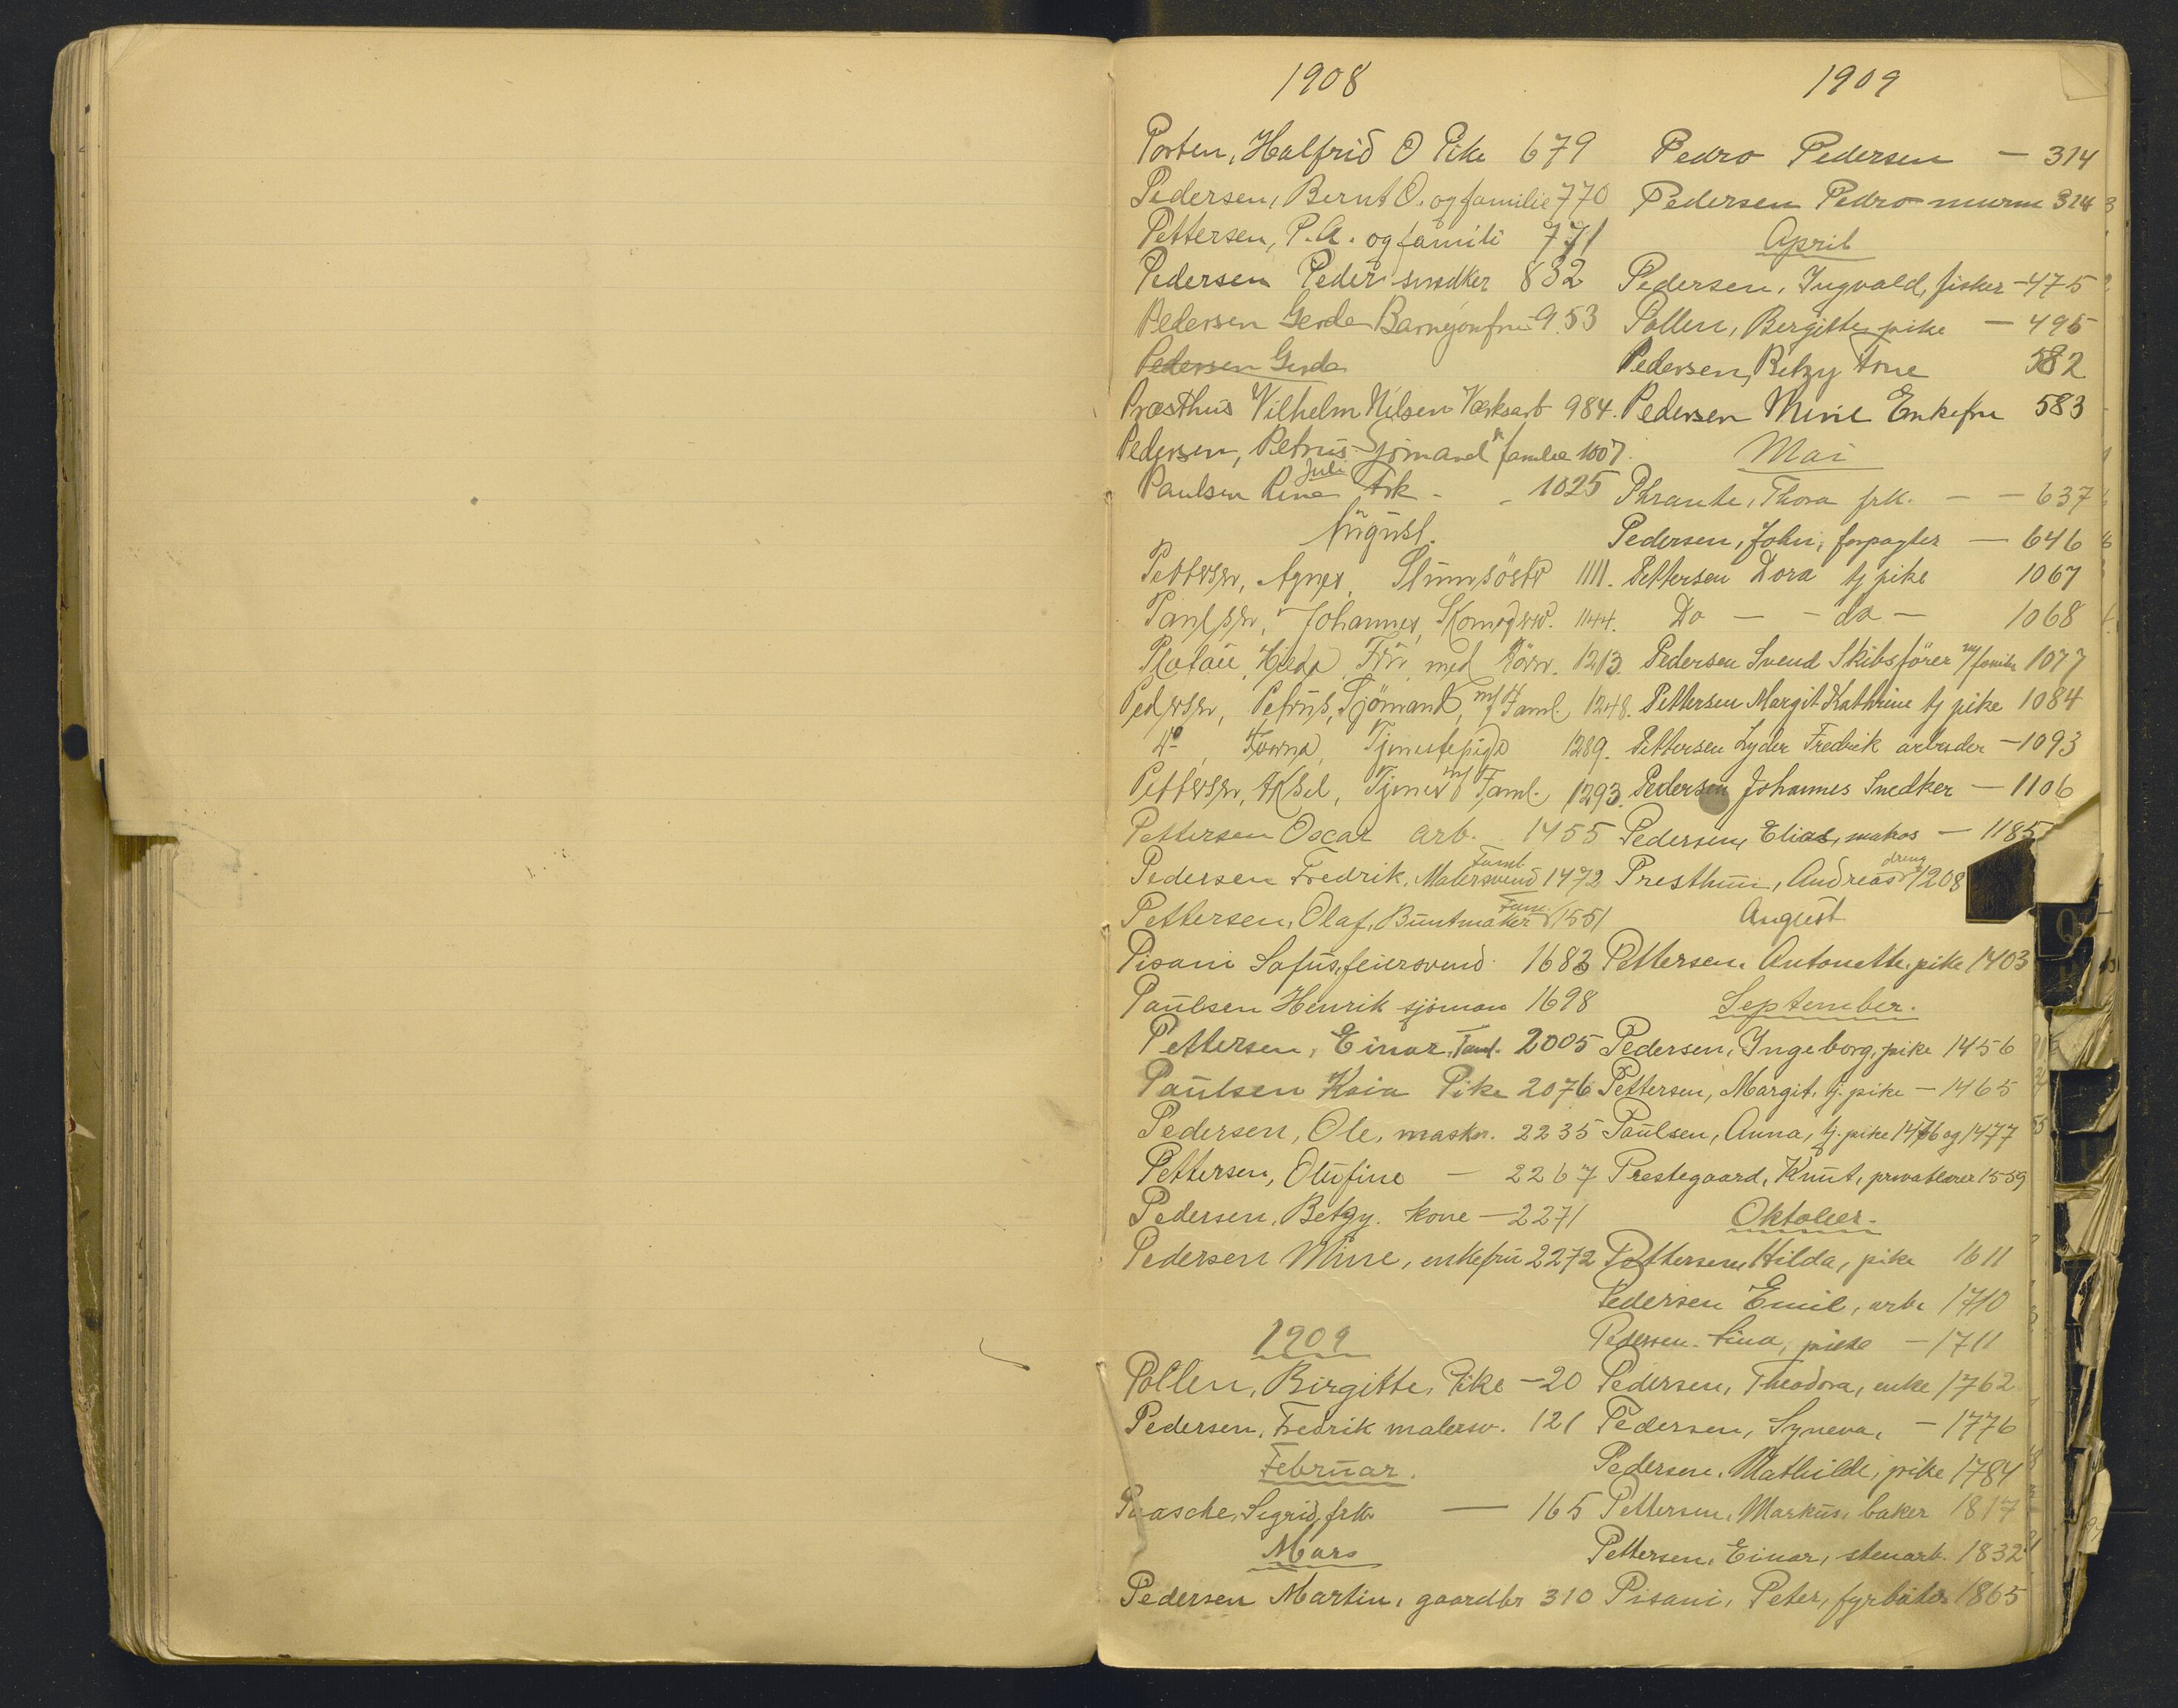 1908
Porten, Halfrid O Pike 679
Pedersen, Bernt O. og familie 770
Pettersen, P.A. og famili 771
Pedersen Peder snedker 832
Pedersen Gerda Barnejomfru 953
Pedersen Gerda
Præsthus Vilhelm Nilsen Værksarb 984.
Pedersen, Petrus Sjömand familie 1007.
Juli
Paulsen Rina Frk - - 1025
August.
Pettersen, Agnes, 1111.
Paulsen, Johannes, Skomager 1144.
Platau, Hilda, Fru, med Börn. 1213.
Pedersen, Petrus, Sjömand, m/ Faml. 1248.
do, Tjenestepige 1289.
Pettersen, Aksel, Tjener m/ Faml. 1293.
Pettersen Oscar arb. 1455
Pedersen Fredrik, Malersvend Faml. 1472
Pettersen, Olaf, Buntmaker Fam. 1551
Pisani Sofus, feiersvend 1683
Paulsen Henrik sjöman 1698
Pettersen, Einar, Faml. 2005
Paulsen Kaia Pike 2076
Pedersen, Ole, maskn. 2235
Pettersen, Olufine — 2267
Pedersen, Betzy. kone — 2271
Pedersen Mine, enkefru 2272
1909
Pollen, Birgitte, Pike — 20
Pedersen, Fredrik malersv. 121
Februar.
Paasche, Sigrid, frk. — 165
Mars
Pedersen Martin, gaardbr 310
1909
Pedro Pedersen — 314
Pedersen Pedro murm 314
April
Pedersen, Ingvald, fisker — 475
Pollen, Bergitte, pike — 495
Pedersen, Betzy Frue 582
Pedersen Mine Enkefru 583
Mai
Thora frk. — — 637
Pedersen, John, forpagter — 646
Pettersen Dora tj pike 1067
Do — - do — 1068
Pedersen Svend Skibsförer m/familie 1077
Pettersen Margit Kathrine tj pike 1084
Pettersen Lyder Fredrik arbeider — 1093
Pedersen Johannes Snedker — 1106
Pedersen, Elias, matros — 1185
Presthun, Andreas dreng 1208
August
Pettersen, Antonette, pike 1403
September.
Pedersen, Ingeborg, pike 1456
Pettersen, Margit, tj. pike — 1465
Paulsen, Anna, tj. pike 1476 og 1477
Prestegaard, Knut, privatlærer 1559
Oktober.
Pettersen, Hilda, pike 1611
Pedersen Emil, arb. 1710
Pedersen. Lina, pike — 1711
Pedersen, Theodora, enke 1762
Pedersen, Syneva, — 1776
Pedersen, Mathilde, pike 1784
Pettersen, Markus, baker 1817
Pettersen, Einar, stenarb. 1832
Pisani, Peter, fyrböter 1865